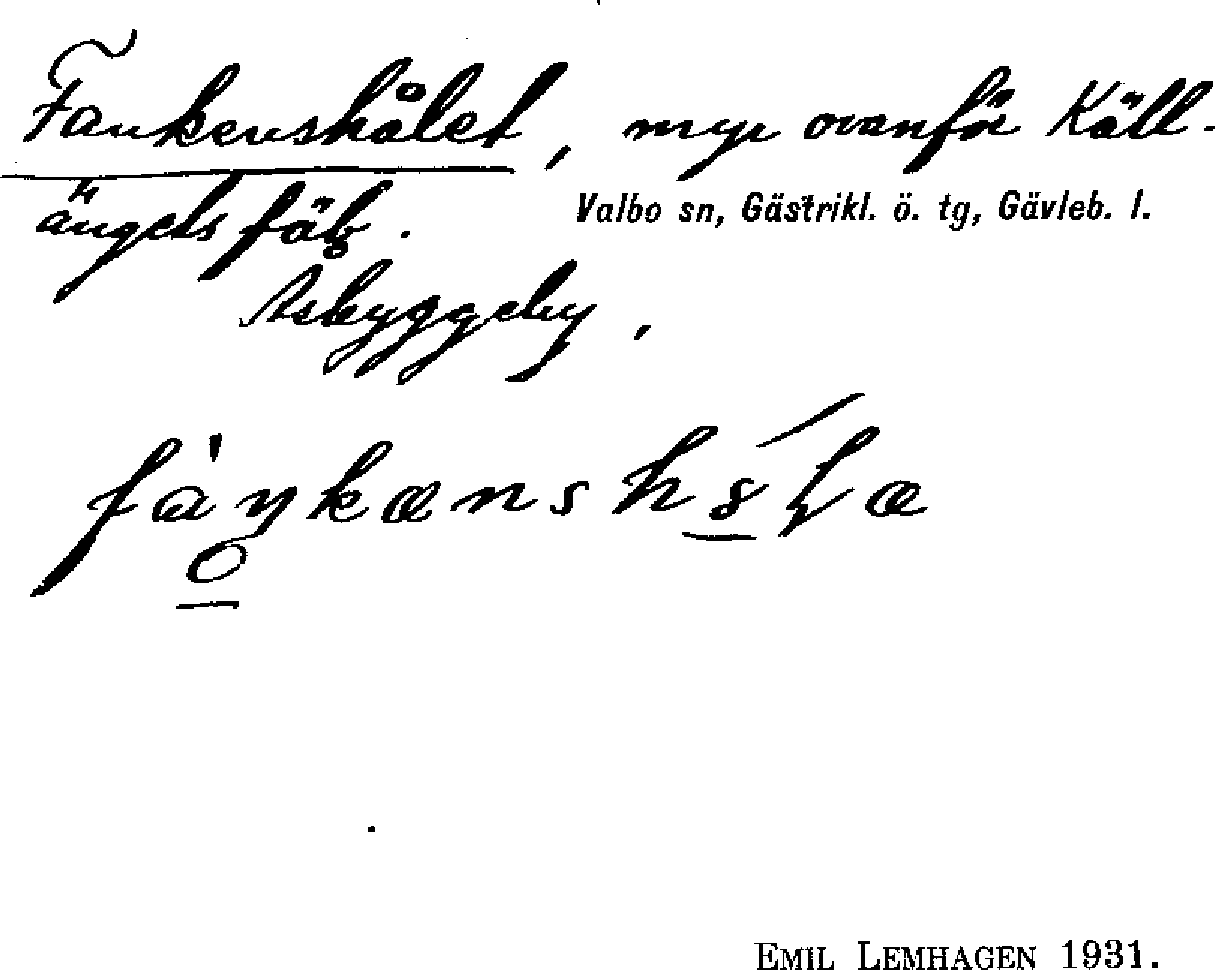 Fankenshålet, myr ovanför Käll-
ängets fäb.
Valbo sn, Gästrikl. ö. tg, Gävleb. l.
Åsbyggeby,
EMIL LEMHAGEN 1931.